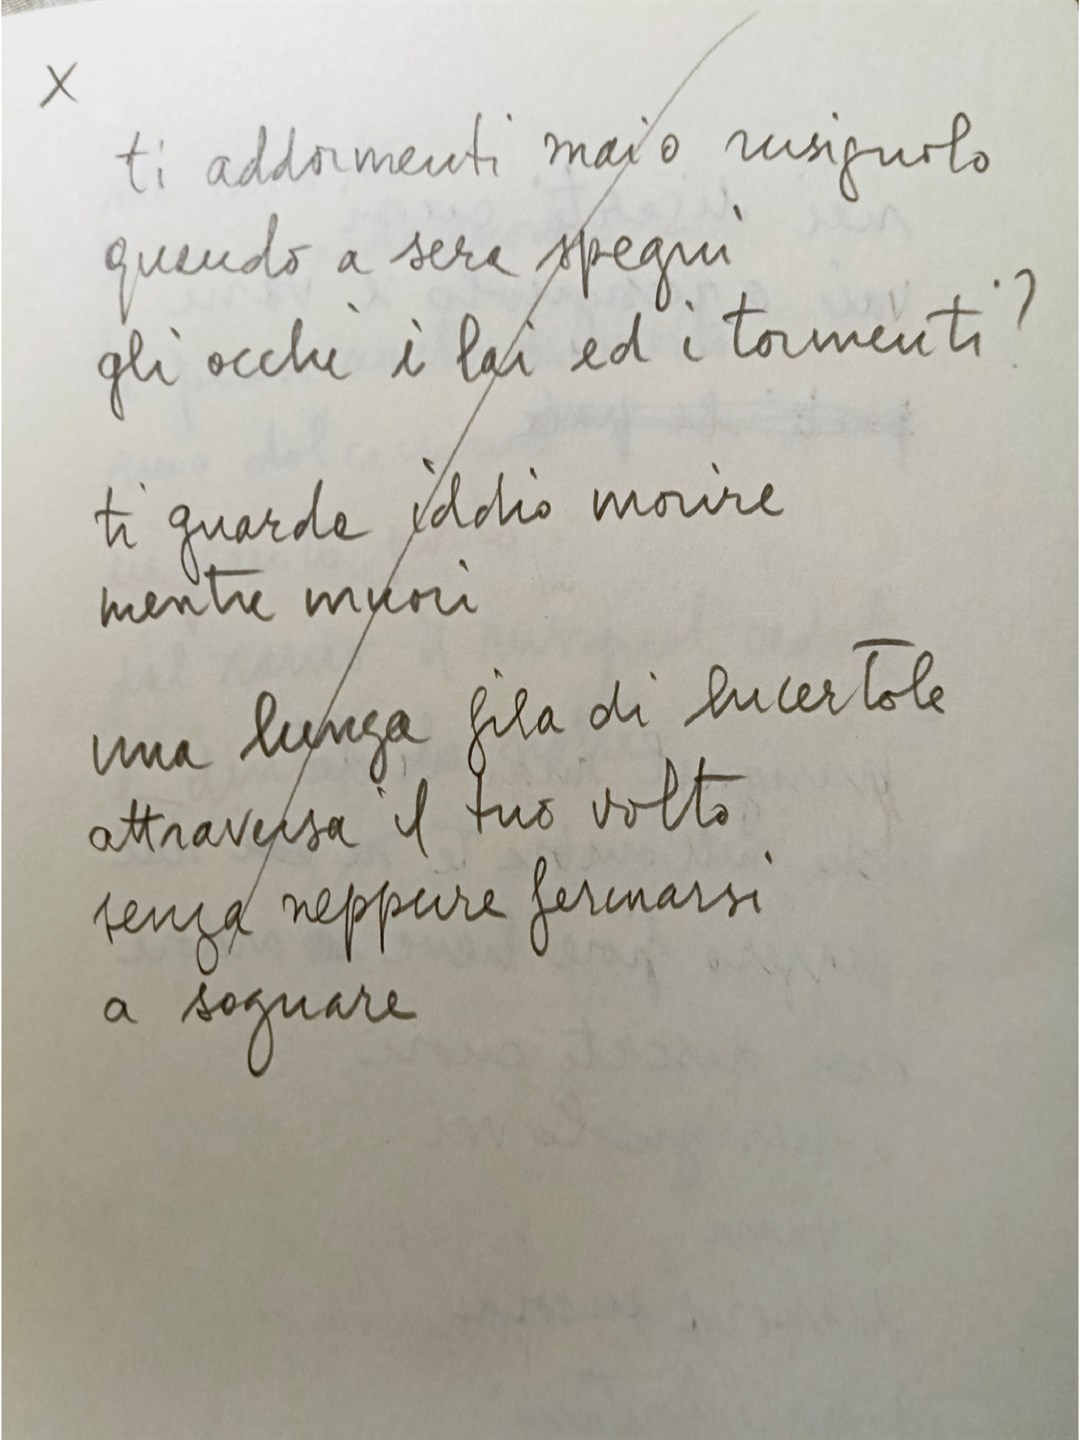 X
ti addormenti mai o rusignolo
quando a sera spegni
gli occhi i lai ed i tormenti?
ti guarda iddio morire
mentre muori
una lunga fila di lucertole
attraversa il tuo volto
senza neppure fermarsi
a sognare